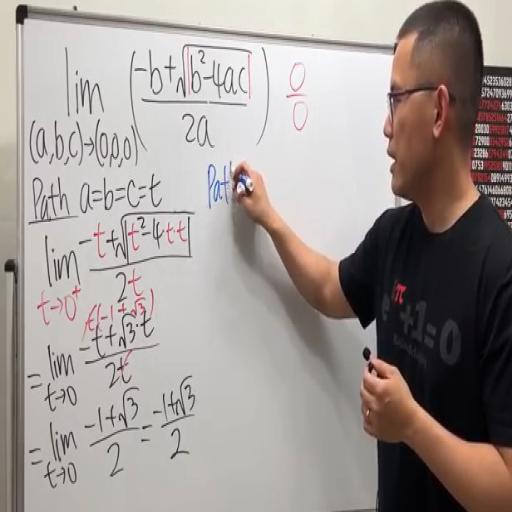 lim (a,b,c)→(0,0,0) ( (-b+√|b²-4ac|) / 2a ) 0/0
Path a=b=c=t
Pat
lim t→0⁺ (-t+√|t²-4tt|) / 2t
t(-1+√3)
= lim t→0 (-t+√3·t) / 2t
= lim t→0 (-1+√3) / 2 = (-1+√3) / 2
π
+1=0